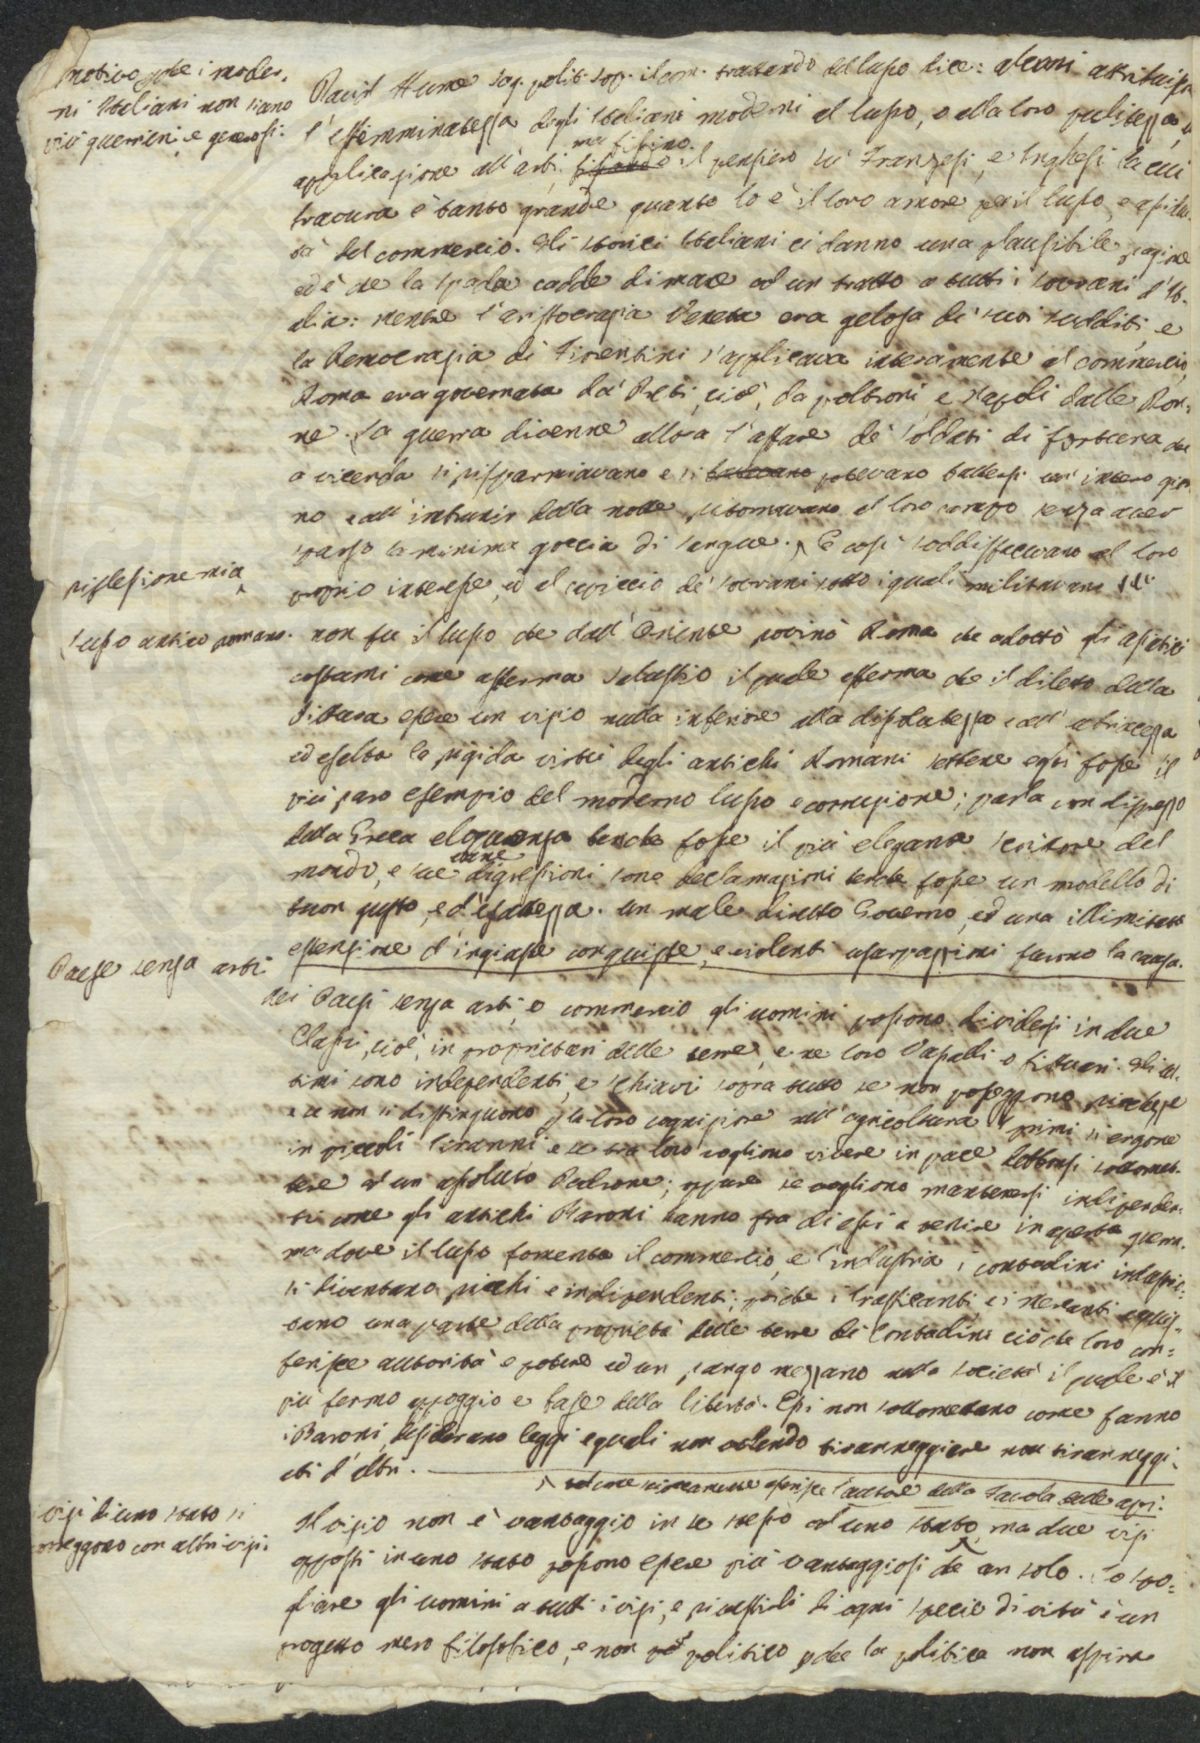 motivo p che i moder-
ni Italiani non siano
più guerrieri, e generosi.
David Hume sag. polit. sop. il com. trattando del lusso dice: alcuni attribuisco
l'effemminatezza degli Italiani moderni al lusso, o alla loro pulitezza, o
applicazione all'arti, ma fissino il pensiero su' Franzesi, e Inglesi la cui
bravura è tanto grande quanto lo è il loro amore per il lusso, e assidui
tà del commercio. Gli storici Italiani ci danno una plausibile ragione
ed è che la spada cadde di mano ad un tratto a tutti i sovrani d'Ita-
lia: mentre l'aristocrazia Veneta era gelosa de' suoi sudditi e
la Democrazia de' Fiorentini s'applicava interamente al commercio,
Roma era governata da' Preti, cioè, da poltroni, e Napoli dalle Don-
ne. La guerra divenne allora l'affare de' soldati di fortuna che
a vicenda si risparmiavano e si potevano battersi un' intero gior
no e all' imbrunir della notte ritornavano al loro campo senza aver
sparso la minima goccia di sangue. E così soddisfacevano al loro
riflessione mia
proprio interesse, ed al capriccio de' sovrani sotto i quali militavano
Lusso antico romano.
non fu il lusso che dall'Oriente rovinò Roma che adottò gli asiatici
costumi come afferma Salustio il quale afferma che il diletto della
Pittura essere un vizio nulla inferiore alla dissolutezza e all' ubriachezza
ed esalta la rigida virtù degli antichi Romani sebbene egli fosse il
più raro esempio del moderno lusso e corruzione; parla con disprezzo
della Greca eloquenza benche fosse il più elegante scritore del
mondo, e sue vane digressioni, sono declamazioni benche fosse un modello di
buon gusto, ed esattezza. un male diretto Governo, ed una illimitata
estensione d'ingiuste conquiste, e violenti usurpazioni furono la causa.
Paese senza arti
nei Paesi senza arti, e commercio gli uomini possono dividersi in due
Classi, cioè, in proprietari delle terre, e ne loro Vassalli o fittuari. Gli ul-
timi sono indipendenti, e schiavi sopra tutto se non posseggono richezze
e se non si distinguono p la loro cognizione nell' agricoltura i primi si ergono
in piccoli Tiranni e se tra loro vogliono vivere in pace debbonsi sottomet-
tere ad un assoluto Padrone; oppure se vogliono mantenersi indipenden-
ti come gli antichi Baroni hanno fra di essi a venire in aperta guerra.
ma dove il lusso fomenta il commercio, e l'industria i contadini industrio-
si diventano ricchi e indipendenti; poiche i trafficanti, e i Mercanti acquis-
tano una parte della proprietà delle terre de' Contadini ciò che loro con-
ferisce autorità e potere ed un rango mezzano nella società il quale è il
più fermo appoggio e base della libertà. Essi non sottomettano come fanno
i Baroni, desiderano leggi eguali non volendo tiranneggiare non tiranneggi-
ati d'altri.
siccome rimarcare asserisce l'autore della Favola delle api.
vizi di uno stato si
correggono con altri vizi.
Il vizio non è vantaggio in se stesso ad uno stato, ma due vizi
opposti in uno stato possono essere più vantaggiosi che un solo. Lo spo-
gliare gli uomini a tutti i vizi, e rivestirli di ogni specie di virtù è un
progetto mero filosofico, e non politico p che la politica non aspira